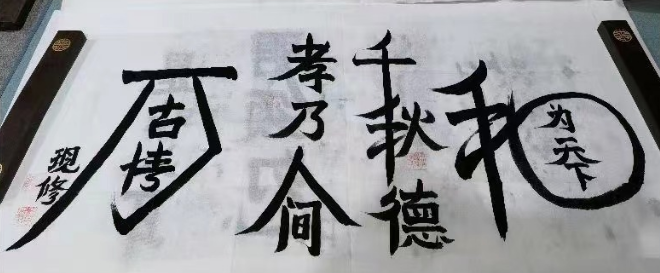 和为天下
千秋德
孝乃人间
万古情
现修